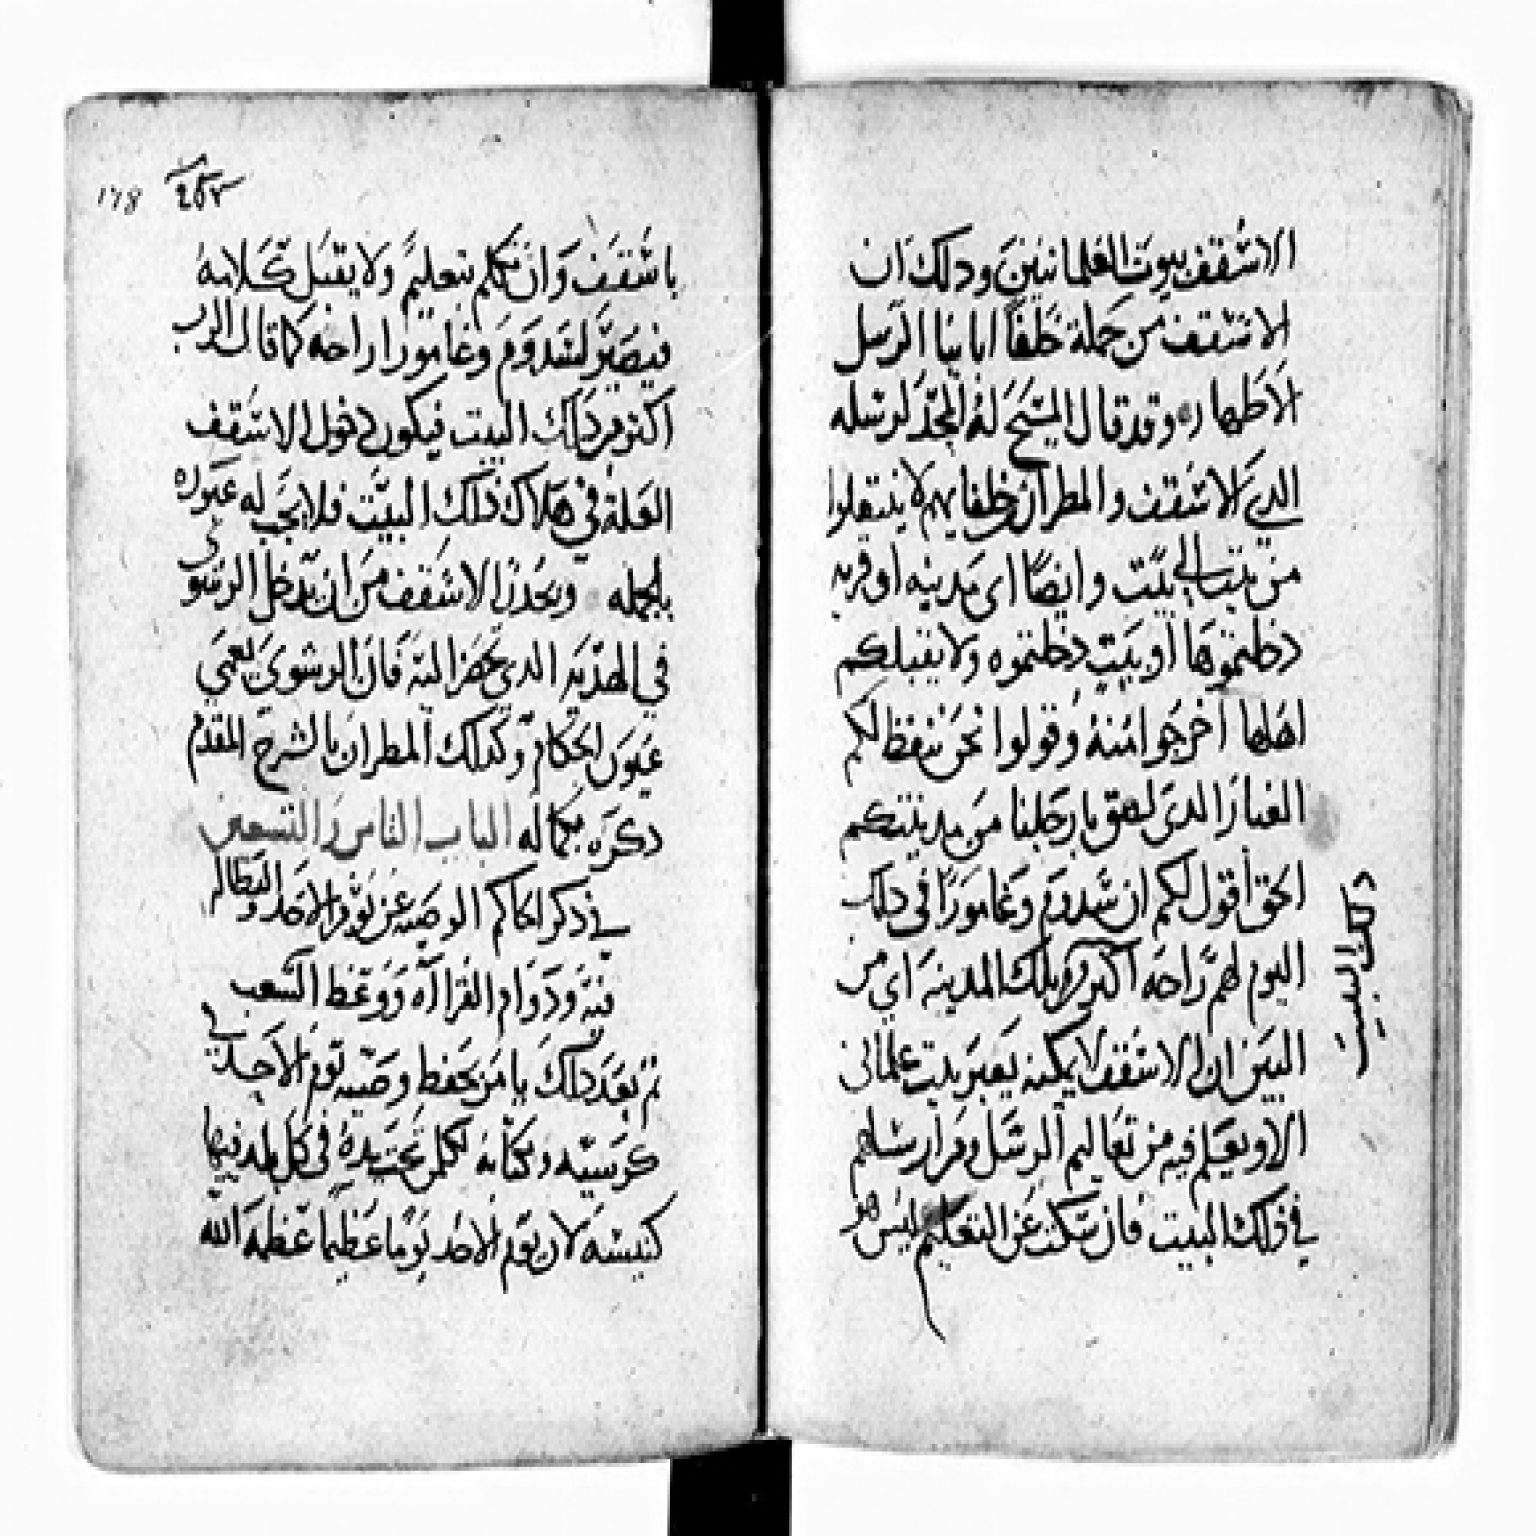 الاسقف بيوت العلمانيين وذلك ان
الاسقف من جملة خلفا ابائنا الرسل
الاطهار وقد قال المسيح له المجد لرسله
الدي الاسقف والمطران خلفايهم لا ينتقلوا
من بيت الى بيت وايضا اى مدينه او قريه
دخلتموها او بيت دخلتموه ولا يقبلكم
اهلها اخرجوا منه وقولوا نحن ننفظ لكم
الغبار الدى لصق بارجلنا من مدينتكم
الحق اقول لكم ان سدوم وغامورا فى دلك
اليوم لهم راحه اكتر من تلك المدينه اي من
دلك البيت
البين ان الاسقف لا يمكنه يعبر بيت علمانى
الا ويعلم فيه من تعاليم الرسل ومن ارسلهم
في ذلك البيت فان سكت عن التعليم ليس هو
١٦٨
باسقف وان تكلم بتعليم ولا يقبل كلامه
فيصير لسدوم وغامورا راحه كما قال الرب
اكتر من دلك البيت فيكون دخول الاسقف
العلة في هلاك ذلك البيت فلا يجب له عبوره
بالجمله ويحدر الاسقف من ان يدخل الرشوى
في الهديه الدي تحضر اليه فان الرشوى يعمي
عيون الحكام وكدلك المطران بالشرح المقدم
دكره بكماله الباب التامن والتسعين
في ذكر الحاكم الوصيه عن يوم الاحد والبطاله
فيه ودوام القراآه ووعظ الشعب
تم بعد دلك يامر بحفظ وصيه يوم الاحد في
كرسيه وبكتابه لكل من تحت يده في كل بلد فيها
كنيسه لان يوم الاحد يوما عظيما عظمه الله